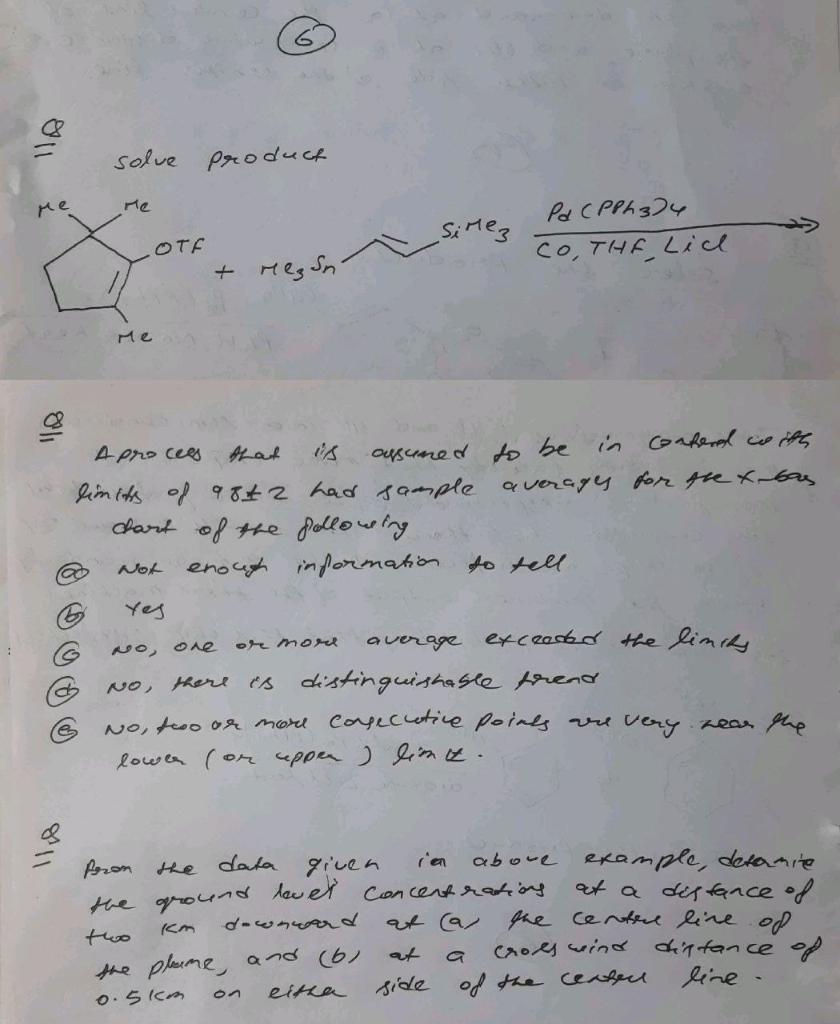 6
Q
solve product
Me
Me
OTF
+ Me3Sn
SiMe3
Pd(PPh3)4
CO, THF, Licl
Me
Q
A process that is assumed to be in control with
limits of 98±2 had sample averages for the x-bar
chart of the following
(a) Not enough information to tell
(b) Yes
(c) No, one or more average exceeded the limits
(d) No, there is distinguishable trend
(e) No, two or more consecutive points are very near the
lower (or upper) limit.
Q
From the data given in above example, determine
the ground level concentrations at a distance of
two km downward at (a) the centre line of
the plume, and (b) at a cross wind distance of
0.5km on either side of the centre line.